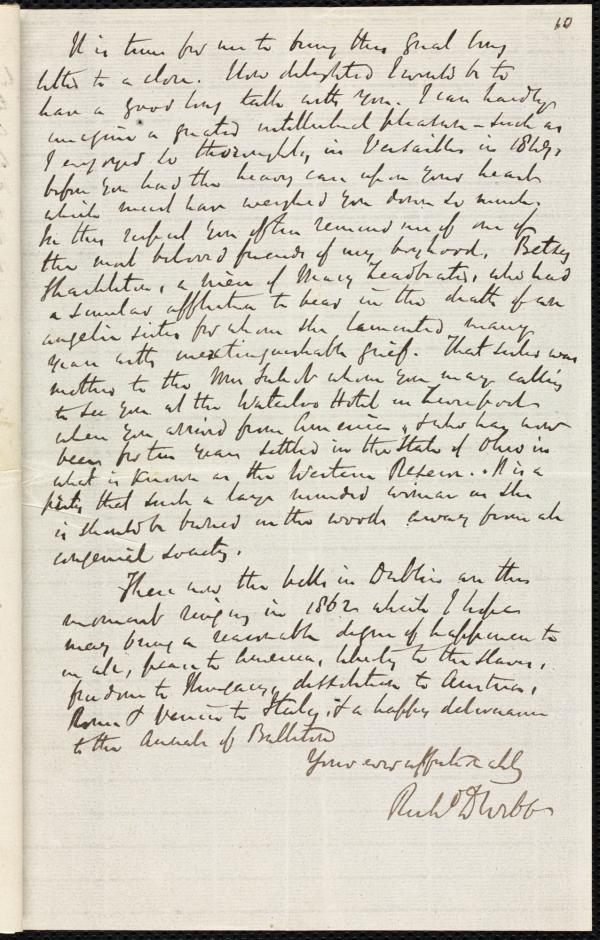 10
It is time for me to bring this great long
letter to a close. How delighted I would be to
have a good long talk with you. I can hardly
imagine a greater intellectual pleasure - such as
I enjoyed so thoroughly in Versailles in 1849,
before you had the heavy care upon your heart
which must have weighed you down so much.
In this respect you often remind me of one of
the most beloved friends of my boyhood, Betsy
Shackleton, a niece of Mary Leadbeater, who had
a similar affliction to bear in the death of an
angelic sister for whom she lamented many
years with inextinguishable grief. That sister was
mother to the Mrs whom you may calling
to see you at the Waterloo Hotel in Liverpool
when you arrived from America, & who has now
been for ten years settled in the State of Ohio in
what is known as the Western Reserve. It is a
pity that such a large minded woman as she
is should be buried in the woods away from all
congenial society.
There now the bells in Dublin are this
moment ringing in 1862 which I hope
may bring a reasonable degree of happiness to
us all, peace to America, liberty to the slaves,
freedom to Hungary, dissolution to Austria,
Rome & Venice to Italy, & a happy deliverance
to the Annals of Ballitore
Yours ever affectionately
Richd D Webb